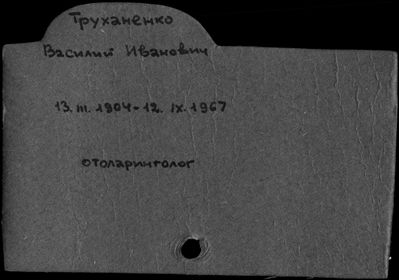 Труханенко
Василий Иванович
13. III. 1904 - 12. IX. 1967
отоларинголог